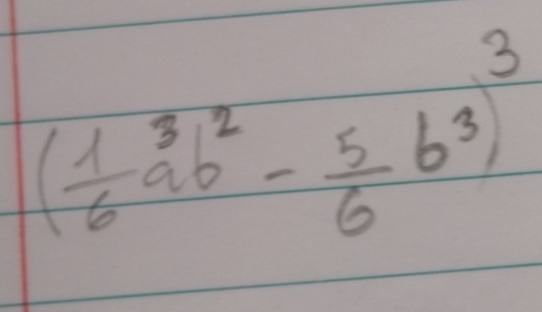 (1/6 a³b² - 5/6 b³)³